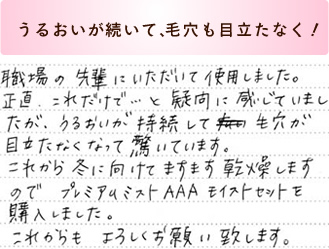 うるおいが続いて、毛穴も目立たなく！
職場の先輩にいただいて使用しました。
正直、これだけで…と疑向に感じていまし
たが、うるおいが持続して毛穴が
目立たなくなって驚いています。
これから冬に向けてますます乾燥します
ので プレミアムミストAAAモイストセットを
購入しました。
これからも よろしくお願い致します。